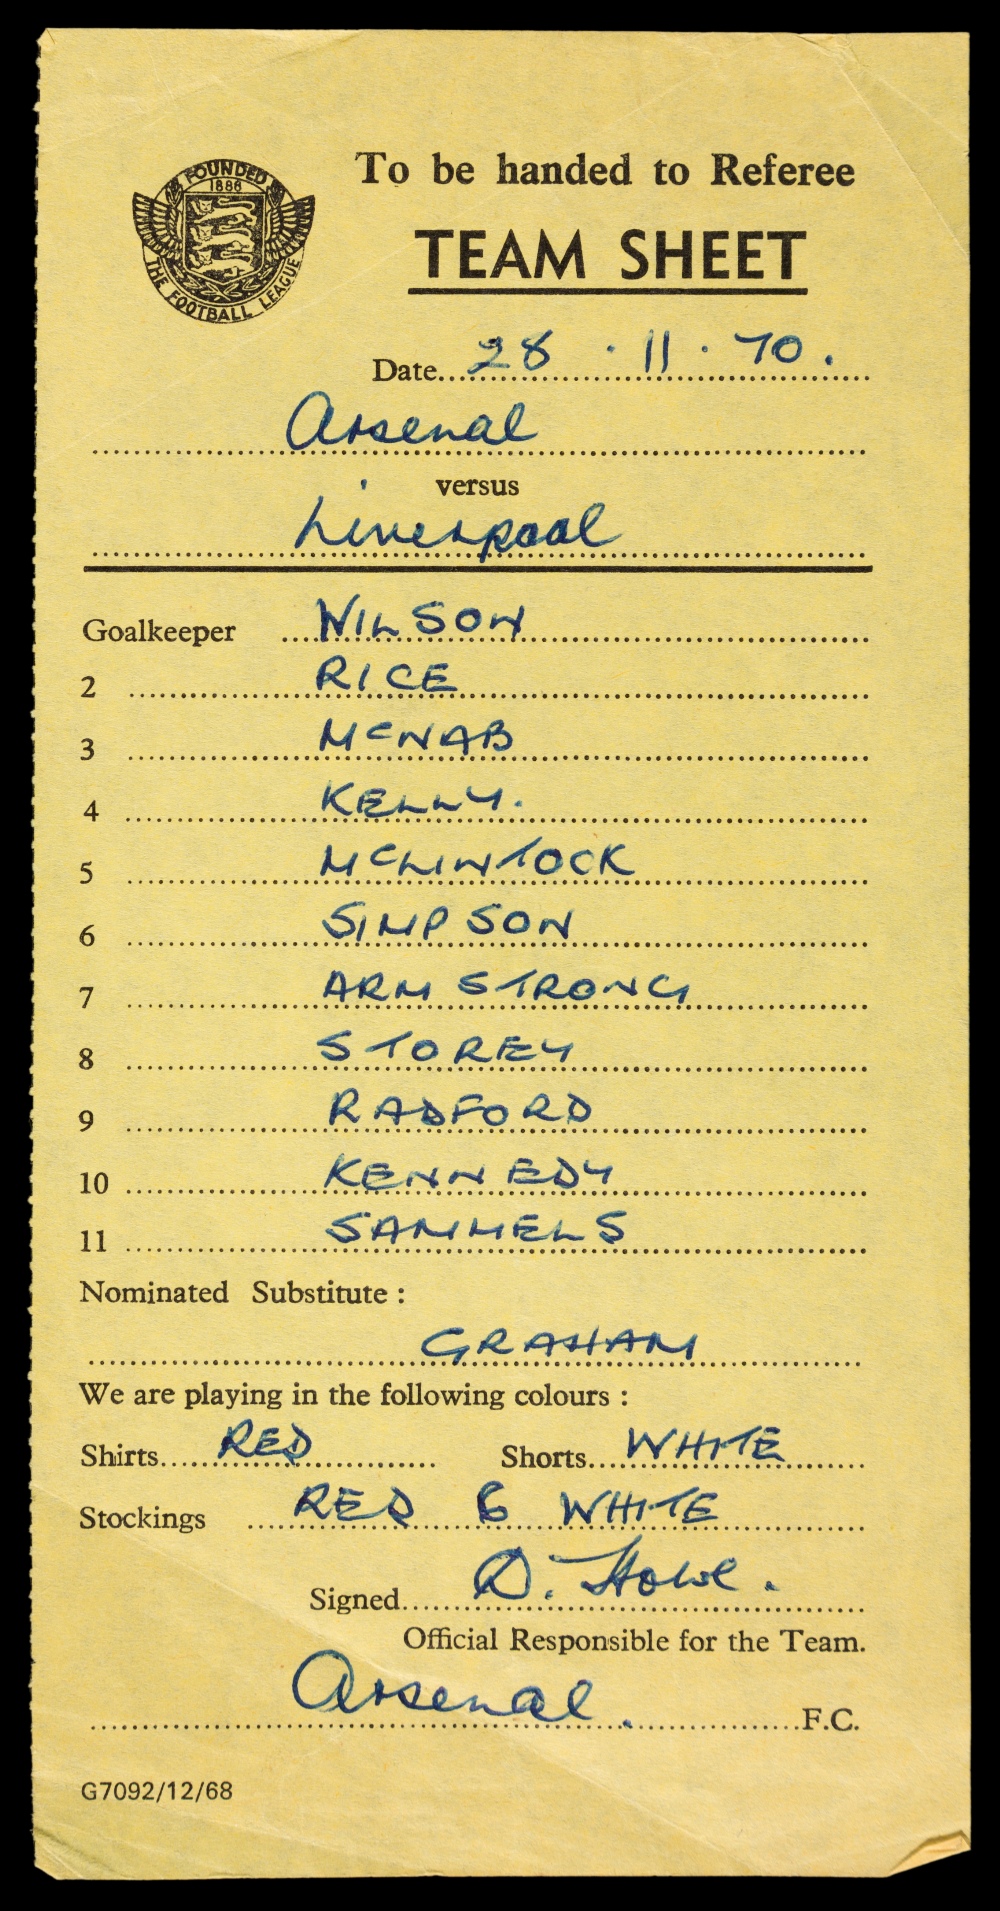 FOUNDED
1888
THE FOOTBALL LEAGUE
To be handed to Referee
TEAM SHEET
Date... 28 . 11 . 70 .
Arsenal
versus
Liverpool
Goalkeeper WILSON
2 RICE
3 McNAB
4 KELLY.
5 McLINTOCK
6 SIMPSON
7 ARMSTRONG
8 STOREY
9 RADFORD
10 KENNEDY
11 SAMMELS
Nominated Substitute :
GRAHAM
We are playing in the following colours :
Shirts RED Shorts WHITE
Stockings RED & WHITE
Signed D. Howe.
Official Responsible for the Team.
Arsenal. F.C.
G7092/12/68